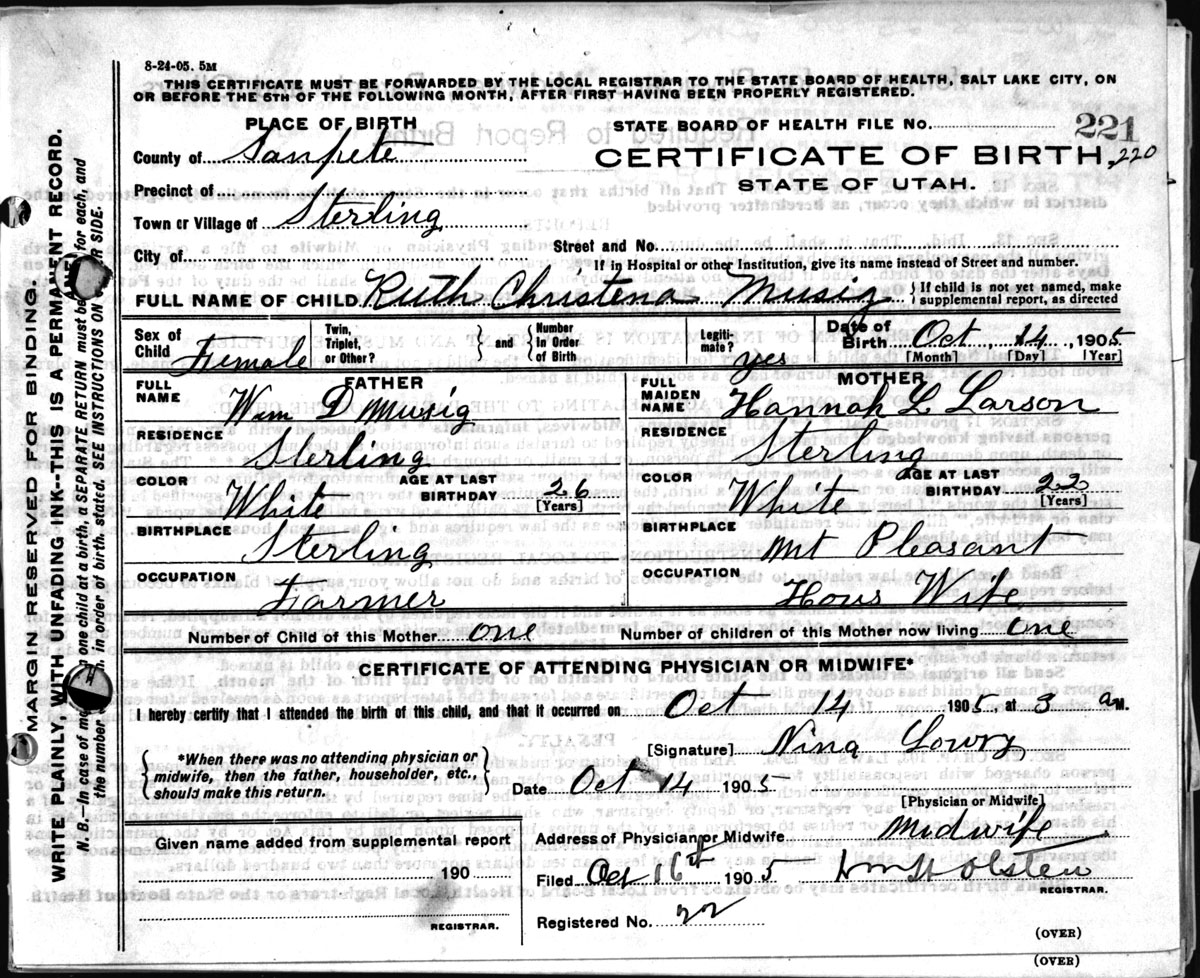 8-24-05. 5M
THIS CERTIFICATE MUST BE FORWARDED BY THE LOCAL REGISTRAR TO THE STATE BOARD OF HEALTH, SALT LAKE CITY, ON
OR BEFORE THE 5TH OF THE FOLLOWING MONTH, AFTER FIRST HAVING BEEN PROPERLY REGISTERED.
PLACE OF BIRTH
STATE BOARD OF HEALTH FILE NO. 221
County of Sanpete
CERTIFICATE OF BIRTH, 220
Precinct of
STATE OF UTAH.
Town or Village of Sterling
Street and No.
City of
If in Hospital or other Institution, give its name instead of Street and number.
FULL NAME OF CHILD Ruth Christena Musig } If child is not yet named, make
supplemental report, as directed
Sex of Child Female Twin, Triplet, or Other? } and { Number In Order of Birth Legiti-mate? yes Date of Birth Oct 14, 1905
[Month] [Day] [Year]
FATHER MOTHER
FULL NAME Wm D Musig FULL MAIDEN NAME Hannah L Larson
RESIDENCE Sterling RESIDENCE Sterling
COLOR White AGE AT LAST BIRTHDAY 26 [Years] COLOR White AGE AT LAST BIRTHDAY 22 [Years]
BIRTHPLACE Sterling BIRTHPLACE Mt Pleasant
OCCUPATION Farmer OCCUPATION Hous Wife
Number of Child of this Mother one Number of children of this Mother now living one
CERTIFICATE OF ATTENDING PHYSICIAN OR MIDWIFE*
I hereby certify that I attended the birth of this child, and that it occurred on Oct 14 1905, at 3 a M.
{ *When there was no attending physician or
midwife, then the father, householder, etc.,
should make this return. }
[Signature] Nina Lowry
Date Oct 14 1905
[Physician or Midwife]
Given name added from supplemental report
190
REGISTRAR.
Address of Physician or Midwife Midwife
Filed Oct 16th 1905 Wm H Olsten
REGISTRAR.
Registered No. 22
(OVER)
(OVER)
MARGIN RESERVED FOR BINDING.
WRITE PLAINLY, WITH UNFADING INK--THIS IS A PERMANENT RECORD.
N. B.--In case of one child at a birth, a SEPARATE RETURN must be for each, and
the number in order of birth, stated. SEE INSTRUCTIONS ON SIDE.